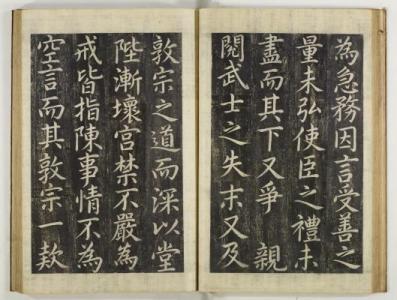 為急務因言受善之
量未弘使臣之禮未
盡而其下又爭親
閱武士之失末又及
敦宗之道而深以堂
陛漸壞宮禁不嚴為
戒皆指陳事情不為
空言而其敦宗一款